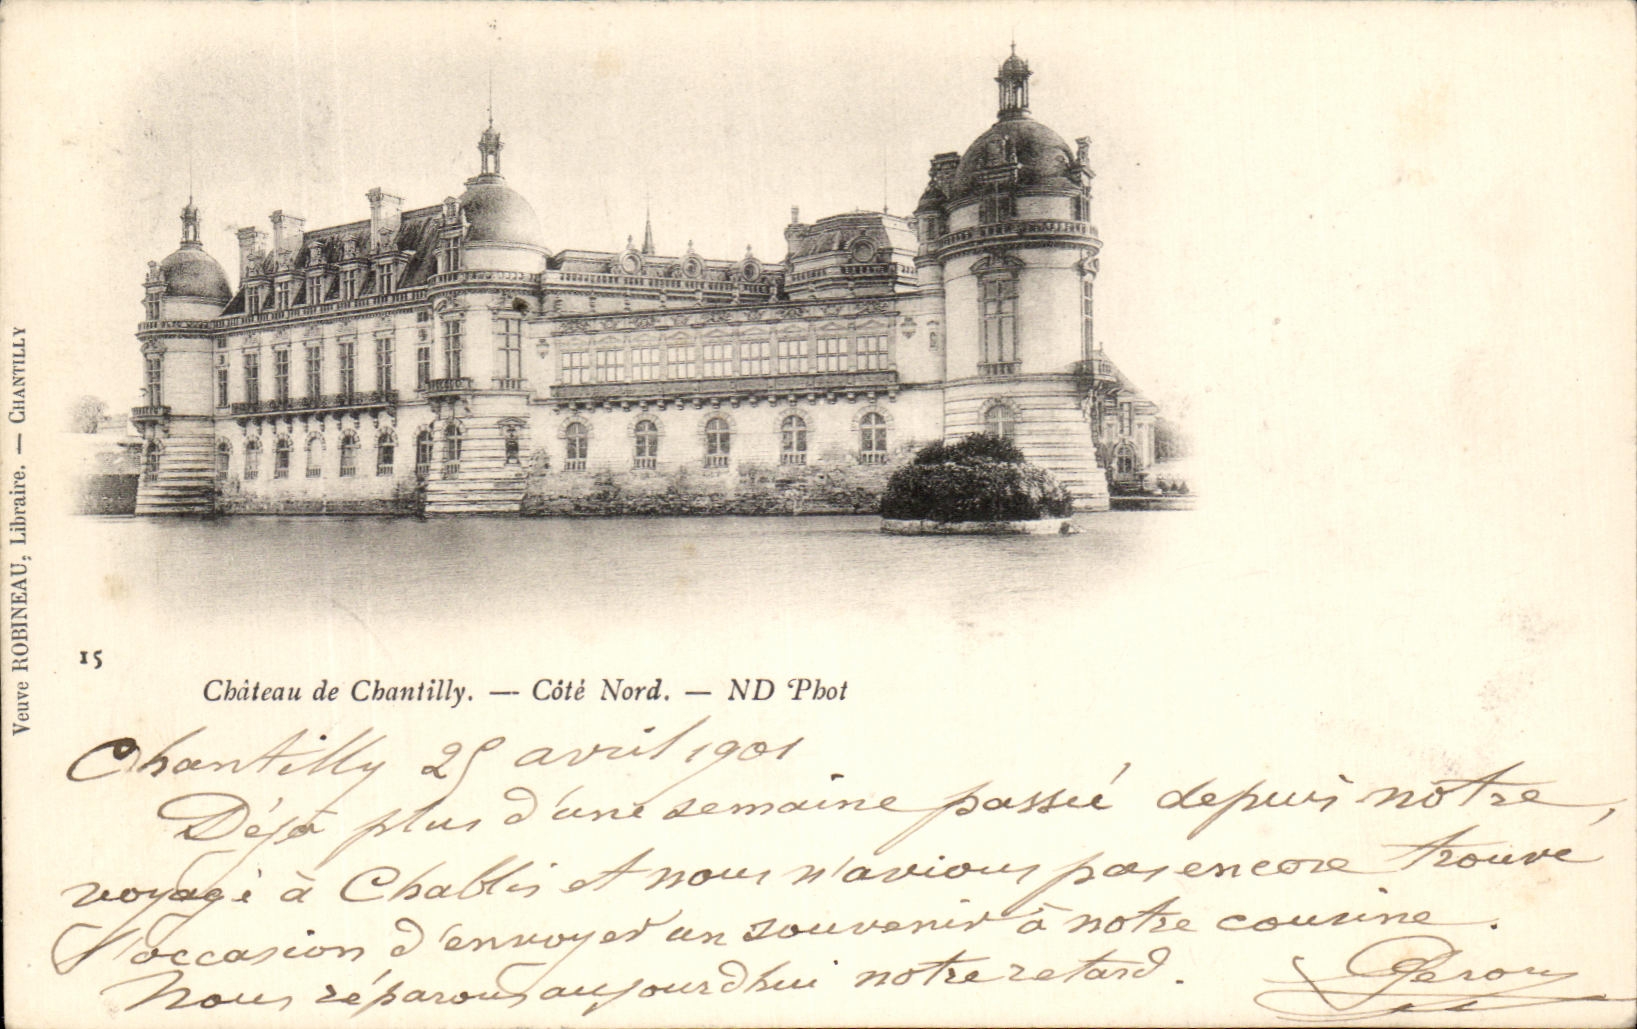 Veuve ROBINEAU, Libraire. — CHANTILLY
15
Château de Chantilly. — Côté Nord. — ND Phot
Chantilly 25 avril 1901
Déjà plus d'une semaine passée depuis notre
voyage à Chablis et nous n'avions pas encore trouvé
l'occasion d'envoyer un souvenir à notre cousine.
Nous réparons aujourd'hui notre retard.